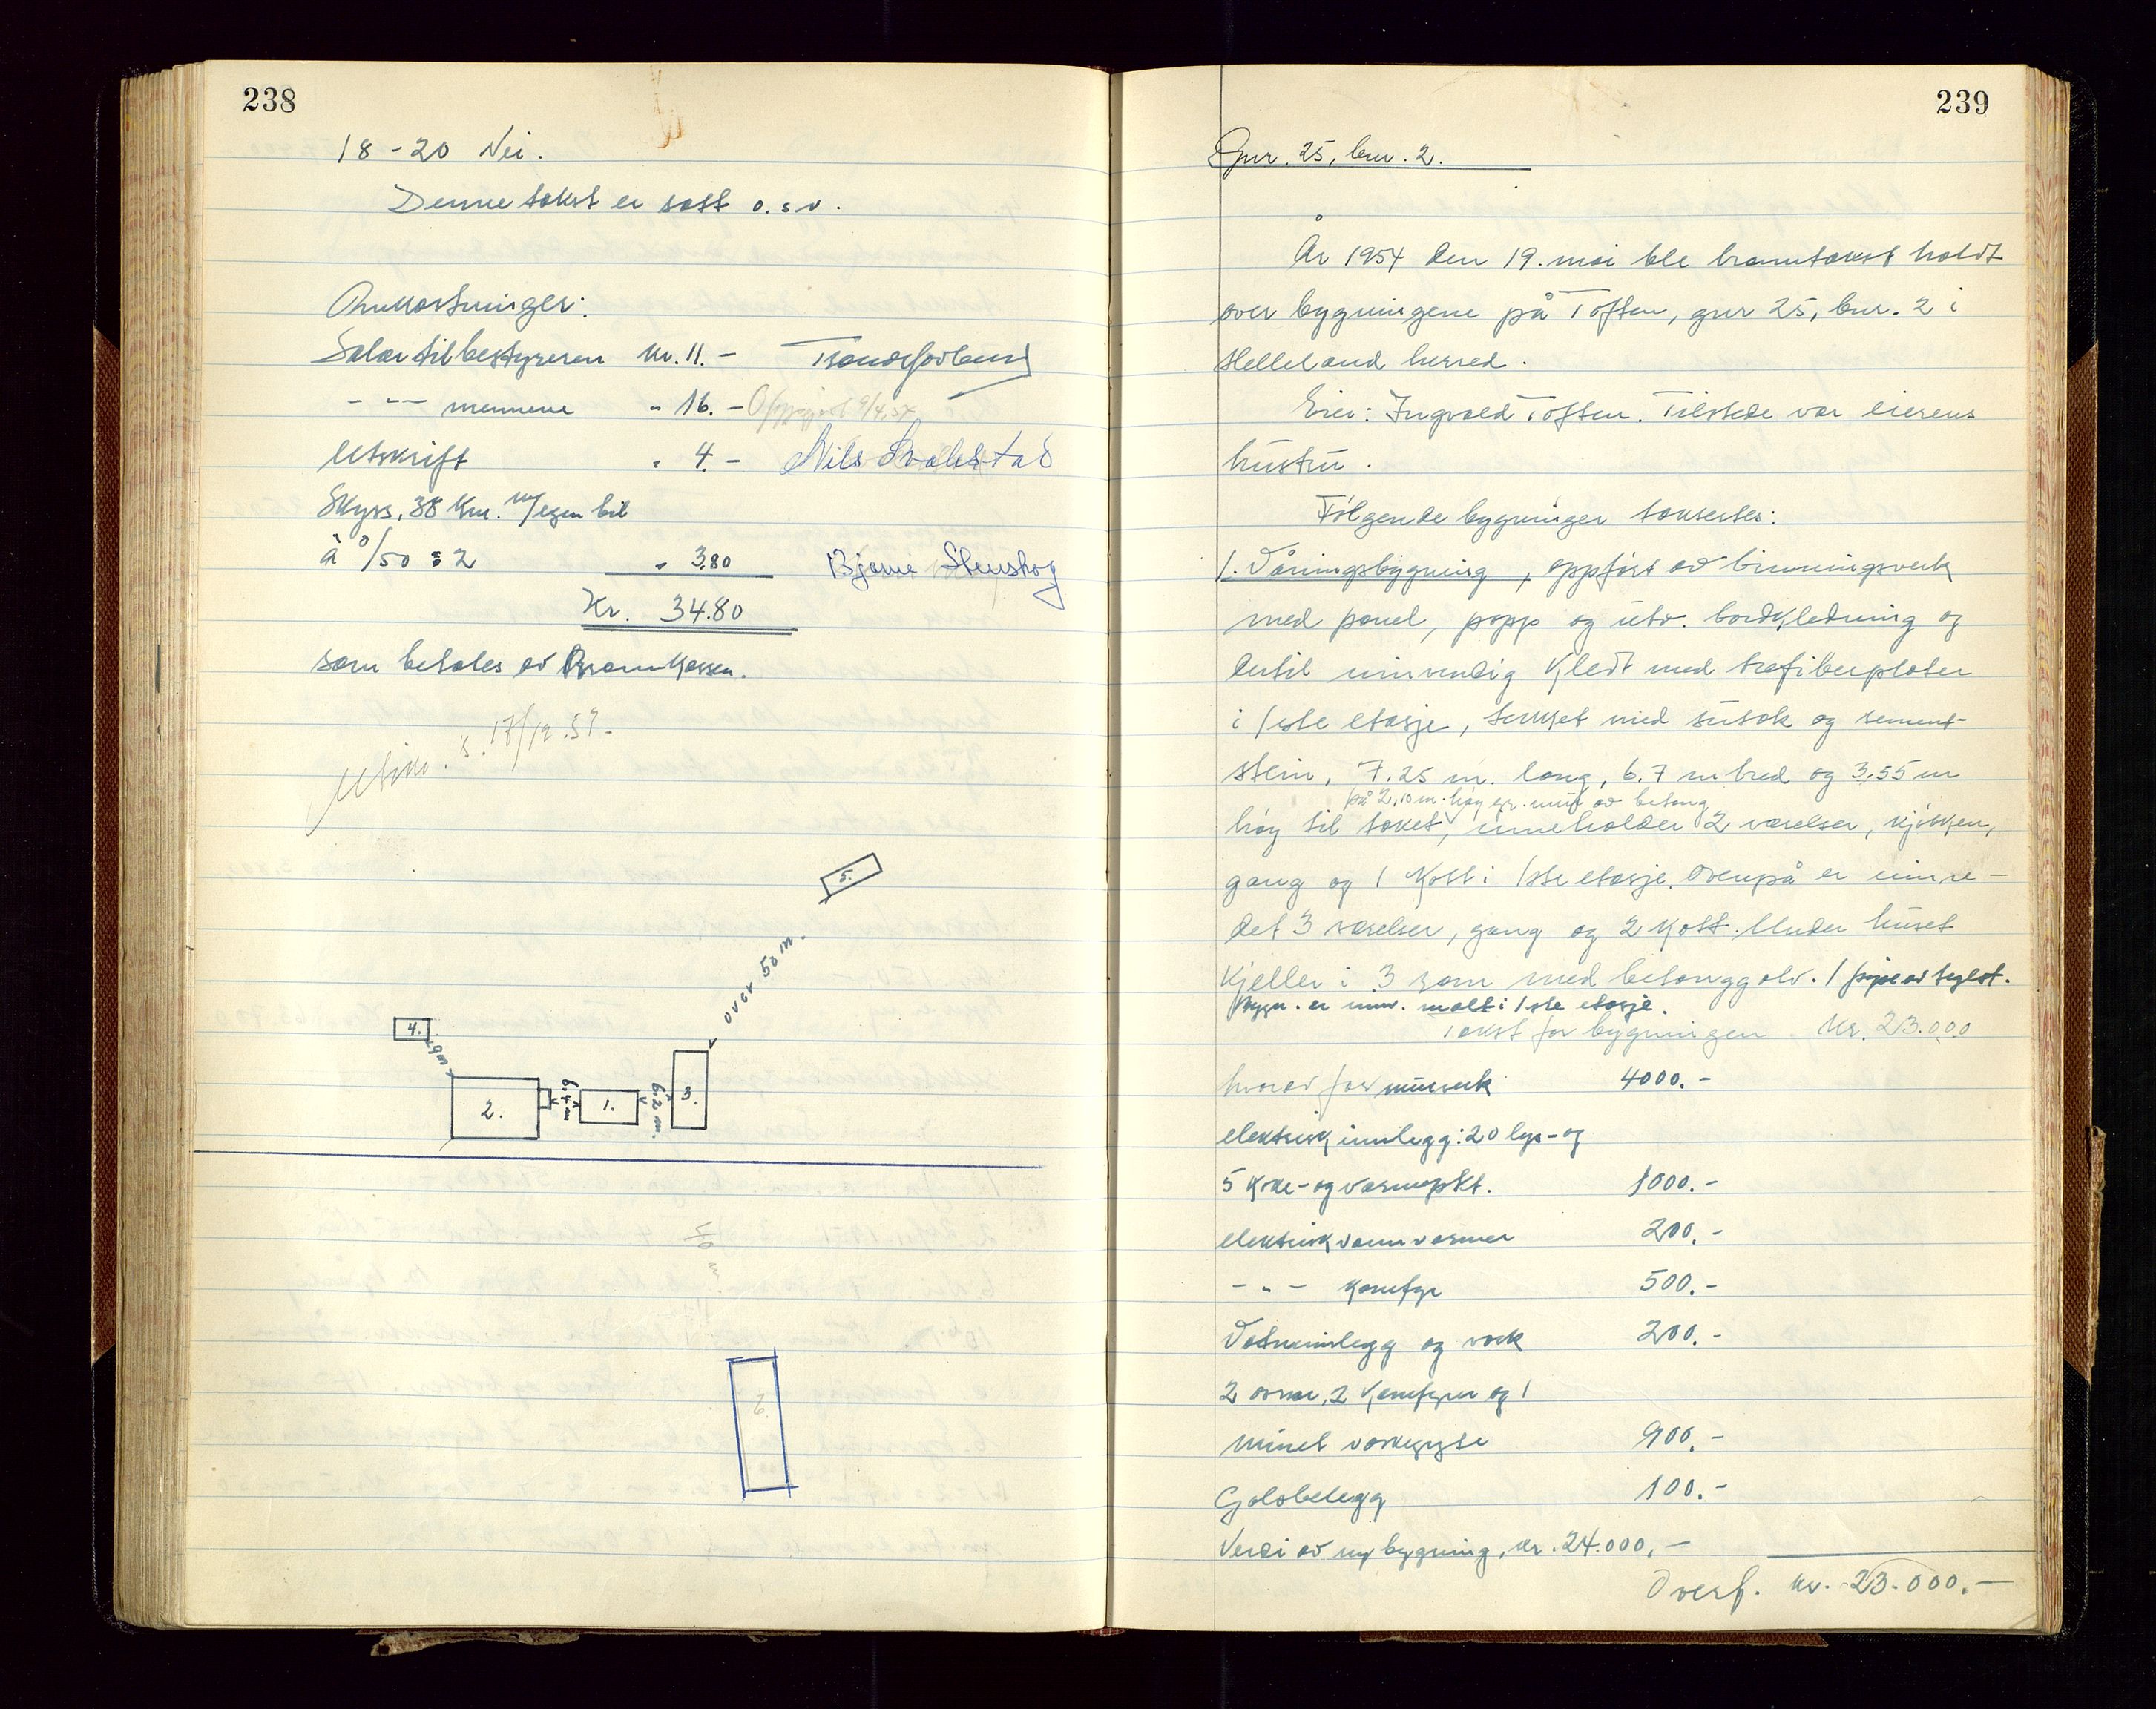 238
18 - 20 Nei.
Denne takst er satt o.s.v.
Omkostninger:
Salær til bestyreren kr. 11. -
- " - mennene " 16. -
Utskrift " 4. - Nils
Skyss, 38 km. m/egen bil
à 0/50 : 2 " 3.80 Bjarne Stenskog
Kr. 34.80
som betales av Brannkassen.
17/12.57.
5.
over 50 m.
4.
9 m
2.
1.
6.2 m.
3.
6
239
Gnr. 25, bnr. 2.
År 1954 den 19. mai ble branntakst holdt
over bygningene på Toften, gnr 25, bnr. 2 i
Helleland herred.
Eier: Ingvald Toften. Tilstede var eierens
hustru.
Følgende bygninger takseres:
1. Våningsbygning, oppført av binningsverk
med panel, papp og utv. bordkledning og
dertil innvendig kledt med trefiberplater
i 1ste etasje, tekket med sutak og sement-
stein, 7.25 m. lang, 6.7 m bred og 3.55 m
på 2,10 m. høy gr. mur av betong
høy til taket, inneholder 2 værelser, kjøkken,
gang og 1 kott i 1ste etasje. Ovenpå er innre-
det 3 værelser, gang og 2 kott. Under huset
kjeller i 3 rom med betonggolv. 1 pipe av teglst.
Bygn. er innv. malt i 1ste etasje.
Takst for bygningen kr. 23.000
hvorav for murverk 4000. -
elektrisk innlegg: 20 lys- og
5 koke- og varmepkt. 1000. -
elektrisk vannvarmer 200. -
- " - komfyr 500. -
Vatninnlegg og vask 200. -
2 ovner, 2 komfyrer og 1
muret vaskegryte 900. -
Golvbelegg 100. -
Verdi av ny bygning, kr. 24.000, -
Overf. kr. 23.000. -